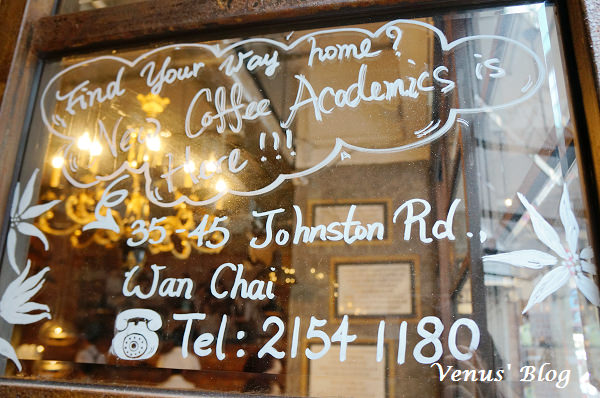 Find Your way home?
New Coffee Academics is
Here!!!
35-45 Johnston Rd.,
Wan Chai
Tel: 2154 1180
Venus' Blog